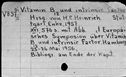 V835 Vitamin B₁₂ und intrinsic factor
Hrsg. von H.C. Heinrich Stutt-
gart: Enke 1957.
XVI 576 S. mit Abb. (Europäi-
sches Symposion über Vitamin
B₁₂ und Intrinsic Factor Hamburg
23.-26. Mai 1956.
Bibliogr. am Ende der Kapit.